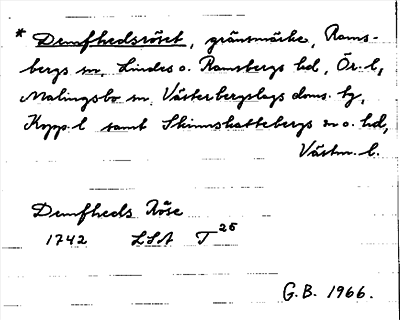 * Demfhedsröset, gränsmärke, Rams-
bergs sn, Lindes o. Ramsbergs hd, Ör. l,
Malingsbo sn, Västerbergslags doms. hg,
Kopp. l samt Skinnskattebergs sn o. hd,
Västm. l.
Demfheds Röse
1742 LSA T 26
G.B. 1966.